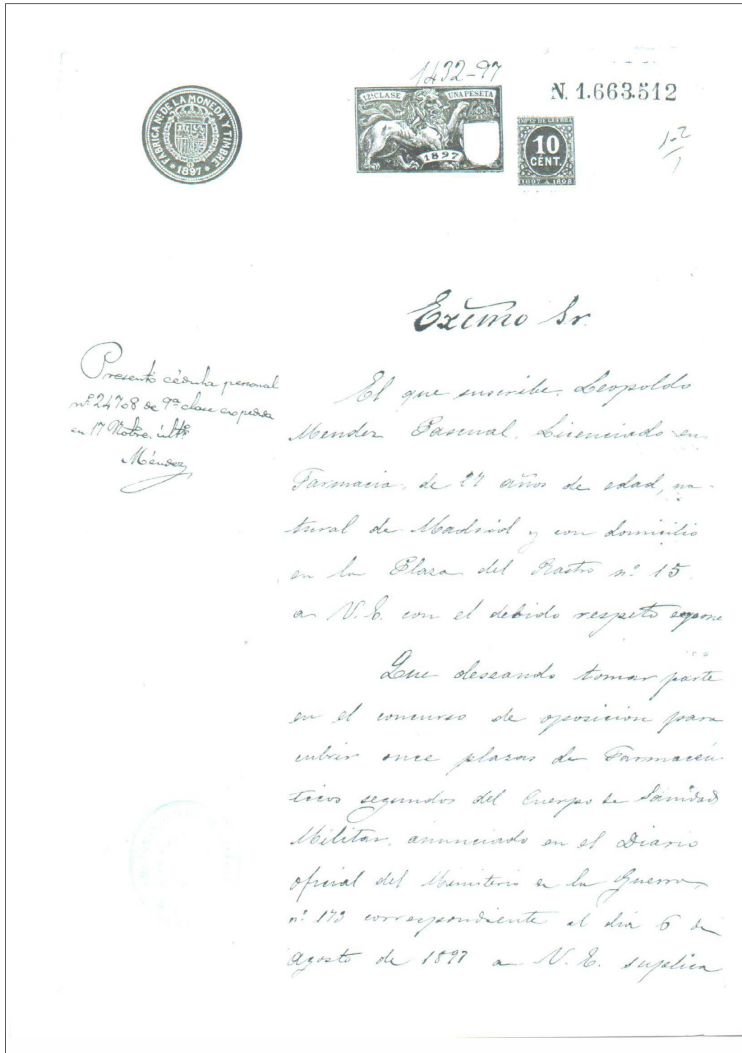 1432-97
FABRICA Nal DE LA MONEDA Y TIMBRE
1897
12ª CLASE UNA PESETA
1897
N. 1.663.512
10
CENT.
1897 A 1898
Exmo Sr.
Presentó cédula personal
nº 24708 de 9ª clase expedida
en 17 Nobre. últº
Méndez
El que suscribe, Leopoldo
Mendez Pascual, Licenciado en
Farmacia, de 27 años de edad, na-
tural de Madrid y con domicilio
en la Plaza del Rastro nº 15.
a V.E. con el debido respeto expone
Que deseando tomar parte
en el concurso de oposicion para
cubrir once plazas de Farmaceu
ticos segundos del Cuerpo de Sanidad
Militar, anunciado en el Diario
oficial del Ministerio de la Guerra,
nº 173 correspondiente al dia 6 de
Agosto de 1897 a V.E. suplica